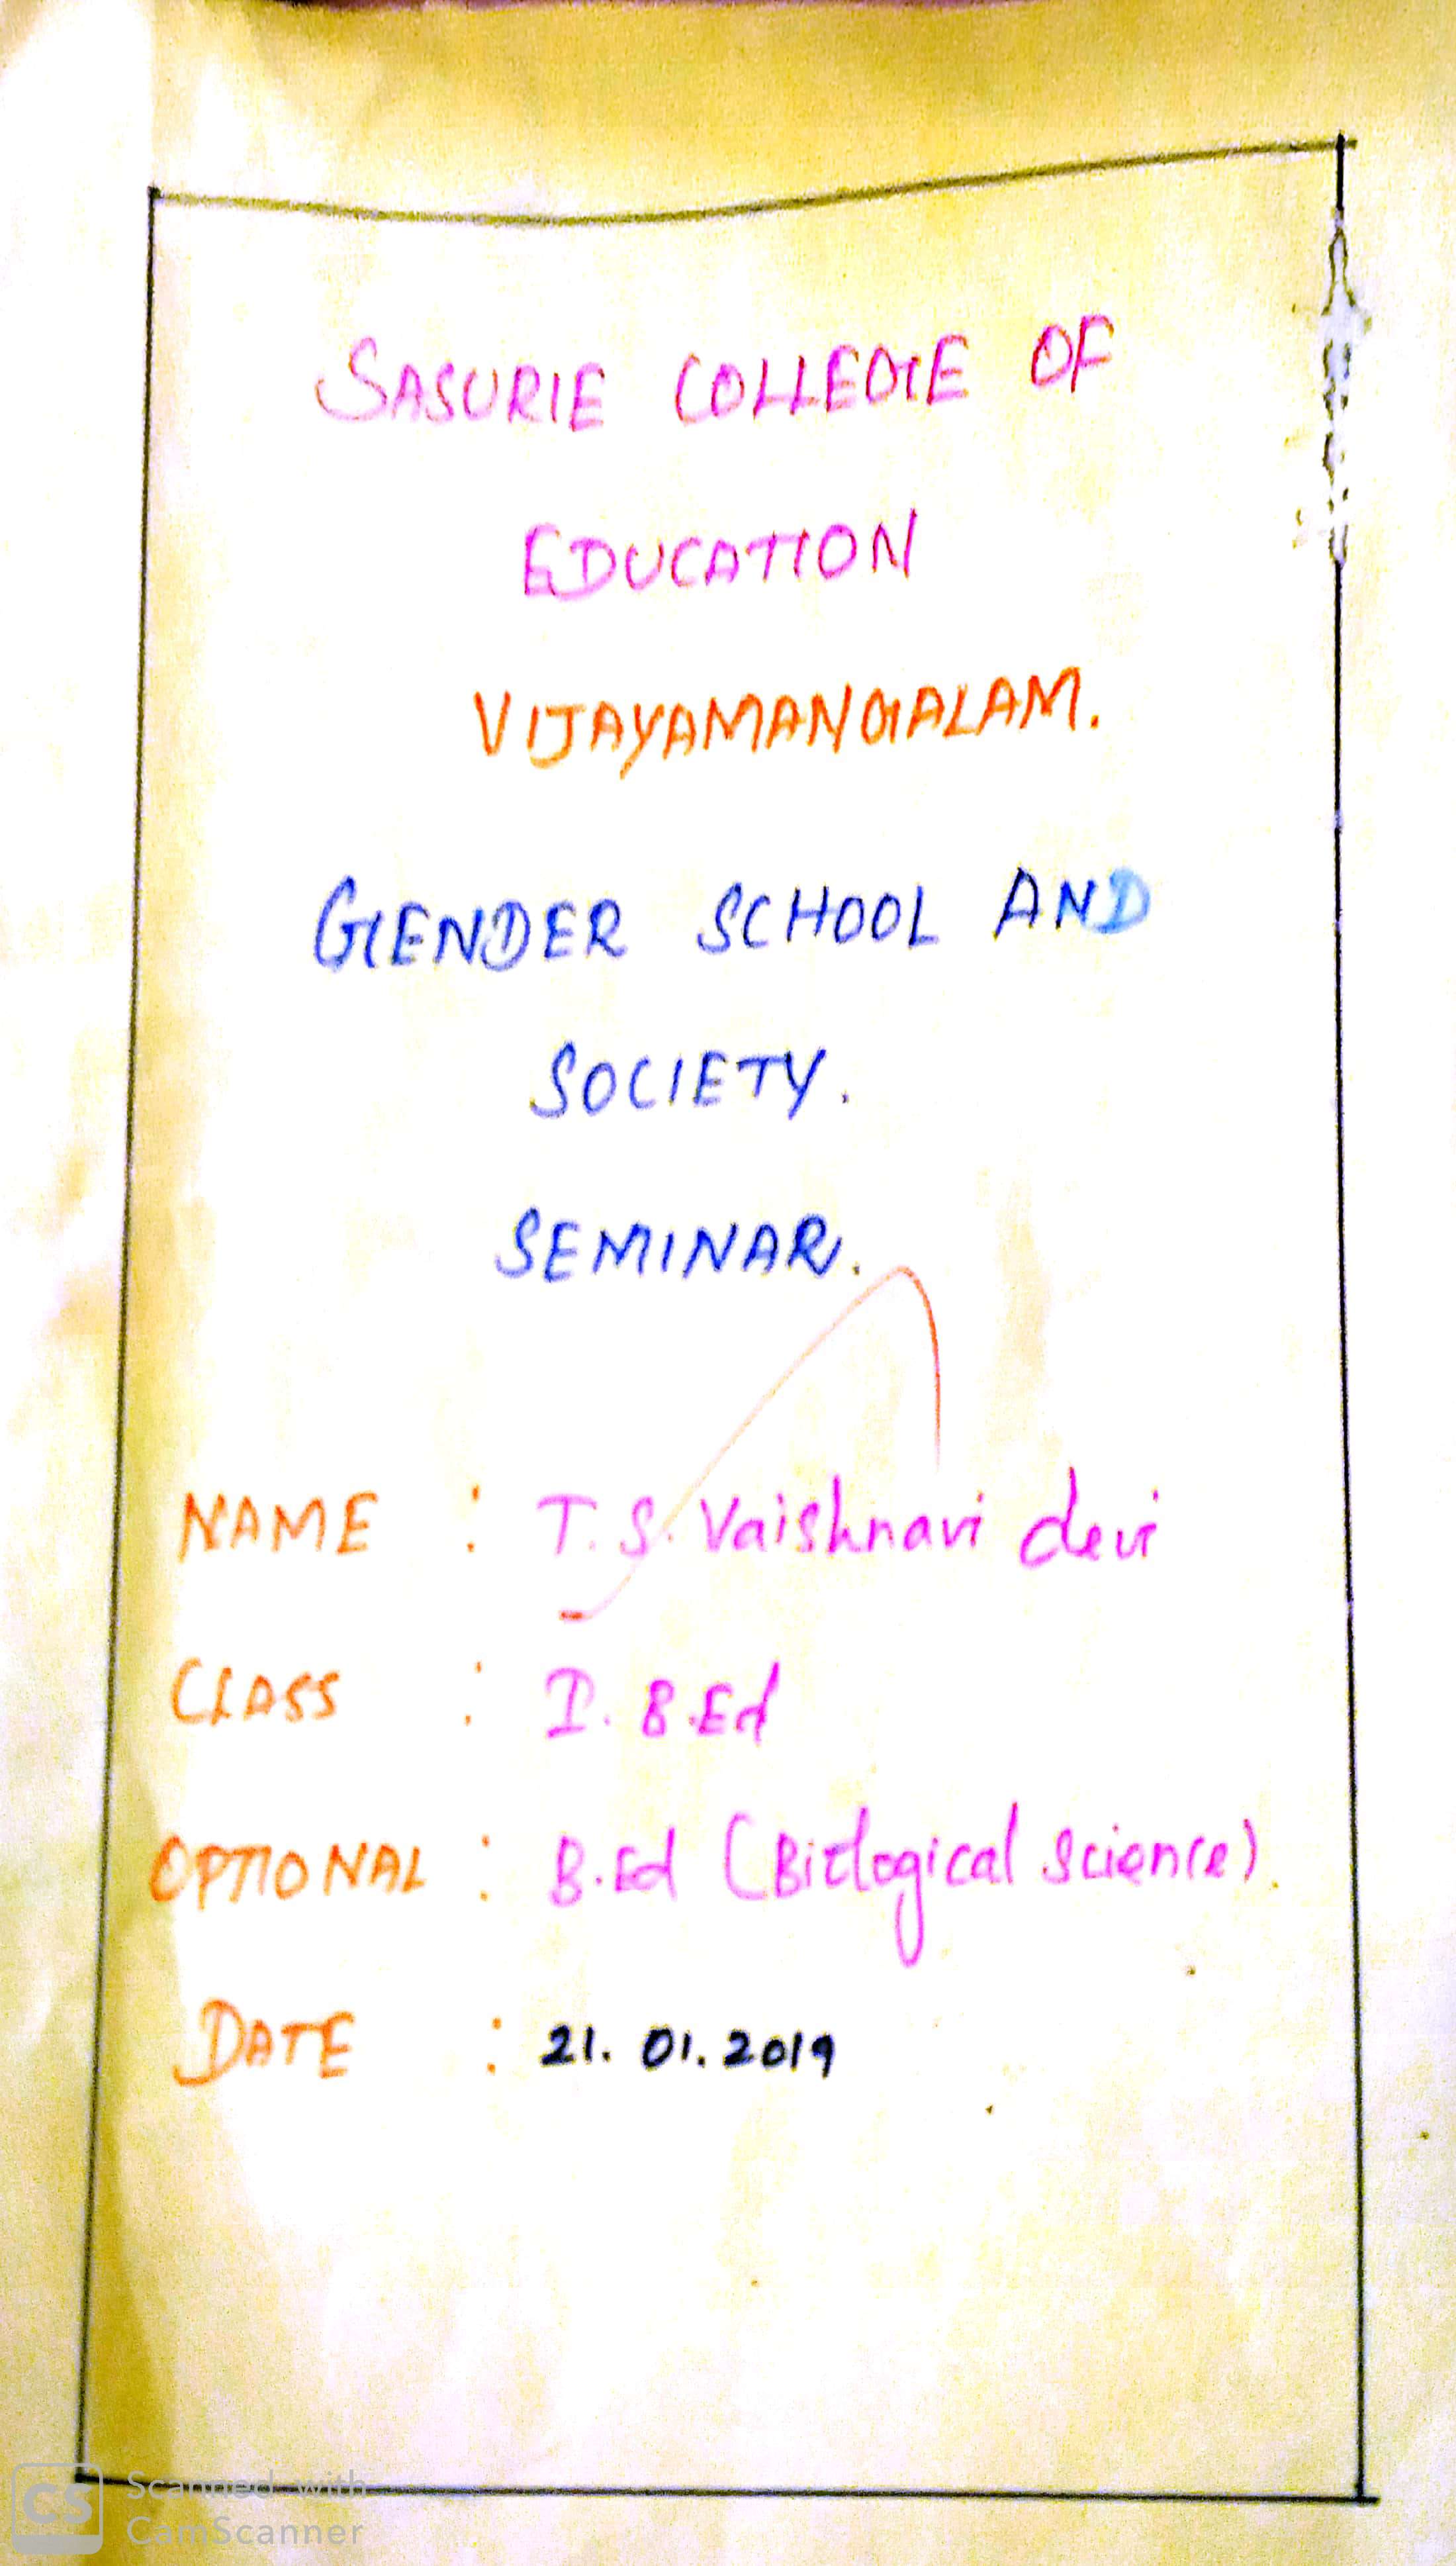 SASURIE COLLEGE OF
EDUCATION
VIJAYAMANGALAM.
GENDER SCHOOL AND
SOCIETY.
SEMINAR.
NAME : T.S. Vaishnavi devi
CLASS : I. B.Ed
OPTIONAL : B.Ed (Biological Science).
DATE : 21. 01. 2019
CS Scanned with
CamScanner